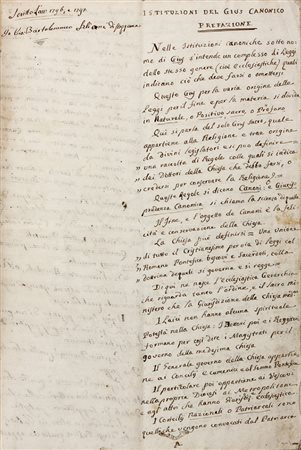 Scritto l'an 1796, e 1797
Da Gio: Bartolommeo
ISTITUZIONI DEL GIUS CANONICO
PREFAZIONE.
Nelle Istituzioni canoniche sotto no=
me di Gius s'intende un complesso di Leggi
dello stesso genere (cioè ecclesiastiche) quali
indicano ciò che deve farsi o omettersi
Questo Gius per la varia origine delle
Leggi per il fine e per la materia si divide
in Naturale, o Positivo sacro, o Profano
Qui si parla del solo Gius sacro, quale
appartiene alla Religione, e trae origine
da Divini legislatori e si può definire
una raccolta di Regole colle quali si indica
dei Dottori della Chiesa che debba farsi, o
credersi per conservare la Religione.
Queste Regole si dicono Canoni, e Giuris
prudenza Canonica si chiama la scienza di quelle
Il fine, e l'oggetto de Canoni è la feli
cità e conservazione della Chiesa.
La Chiesa può definirsi = Una Unione
di tutti il Cristianesimo per via di Leggi col
Romano Pontefice Vescovi e Sacerdoti, colla
dottrina de quali si governa e si regge
Di qui ne nasce l'ecclesiastica Gerarchia
che riguarda tanto l'ordine, o il sacro Mi
nistero che la Giurisdizione della Chiesa
I Laici non hanno alcuna spirituale
Potestà nella Chiesa. I poi e Reggitori
formano per così dire i Magistrati per il
governo della medesima Chiesa
Il Generale governo della Chiesa appartie
ne ai Concilj Ecumenici e al sommo Pontefice
Il particolare poi appartiene ai Vescovi
nella propria Diocesi ai Metropolitani
e agli altri che hanno Giurisd: ecclesiastica.
I Concilj Nazionali o Patriarcali sono
quelli che vengono convocati dal Patriarca